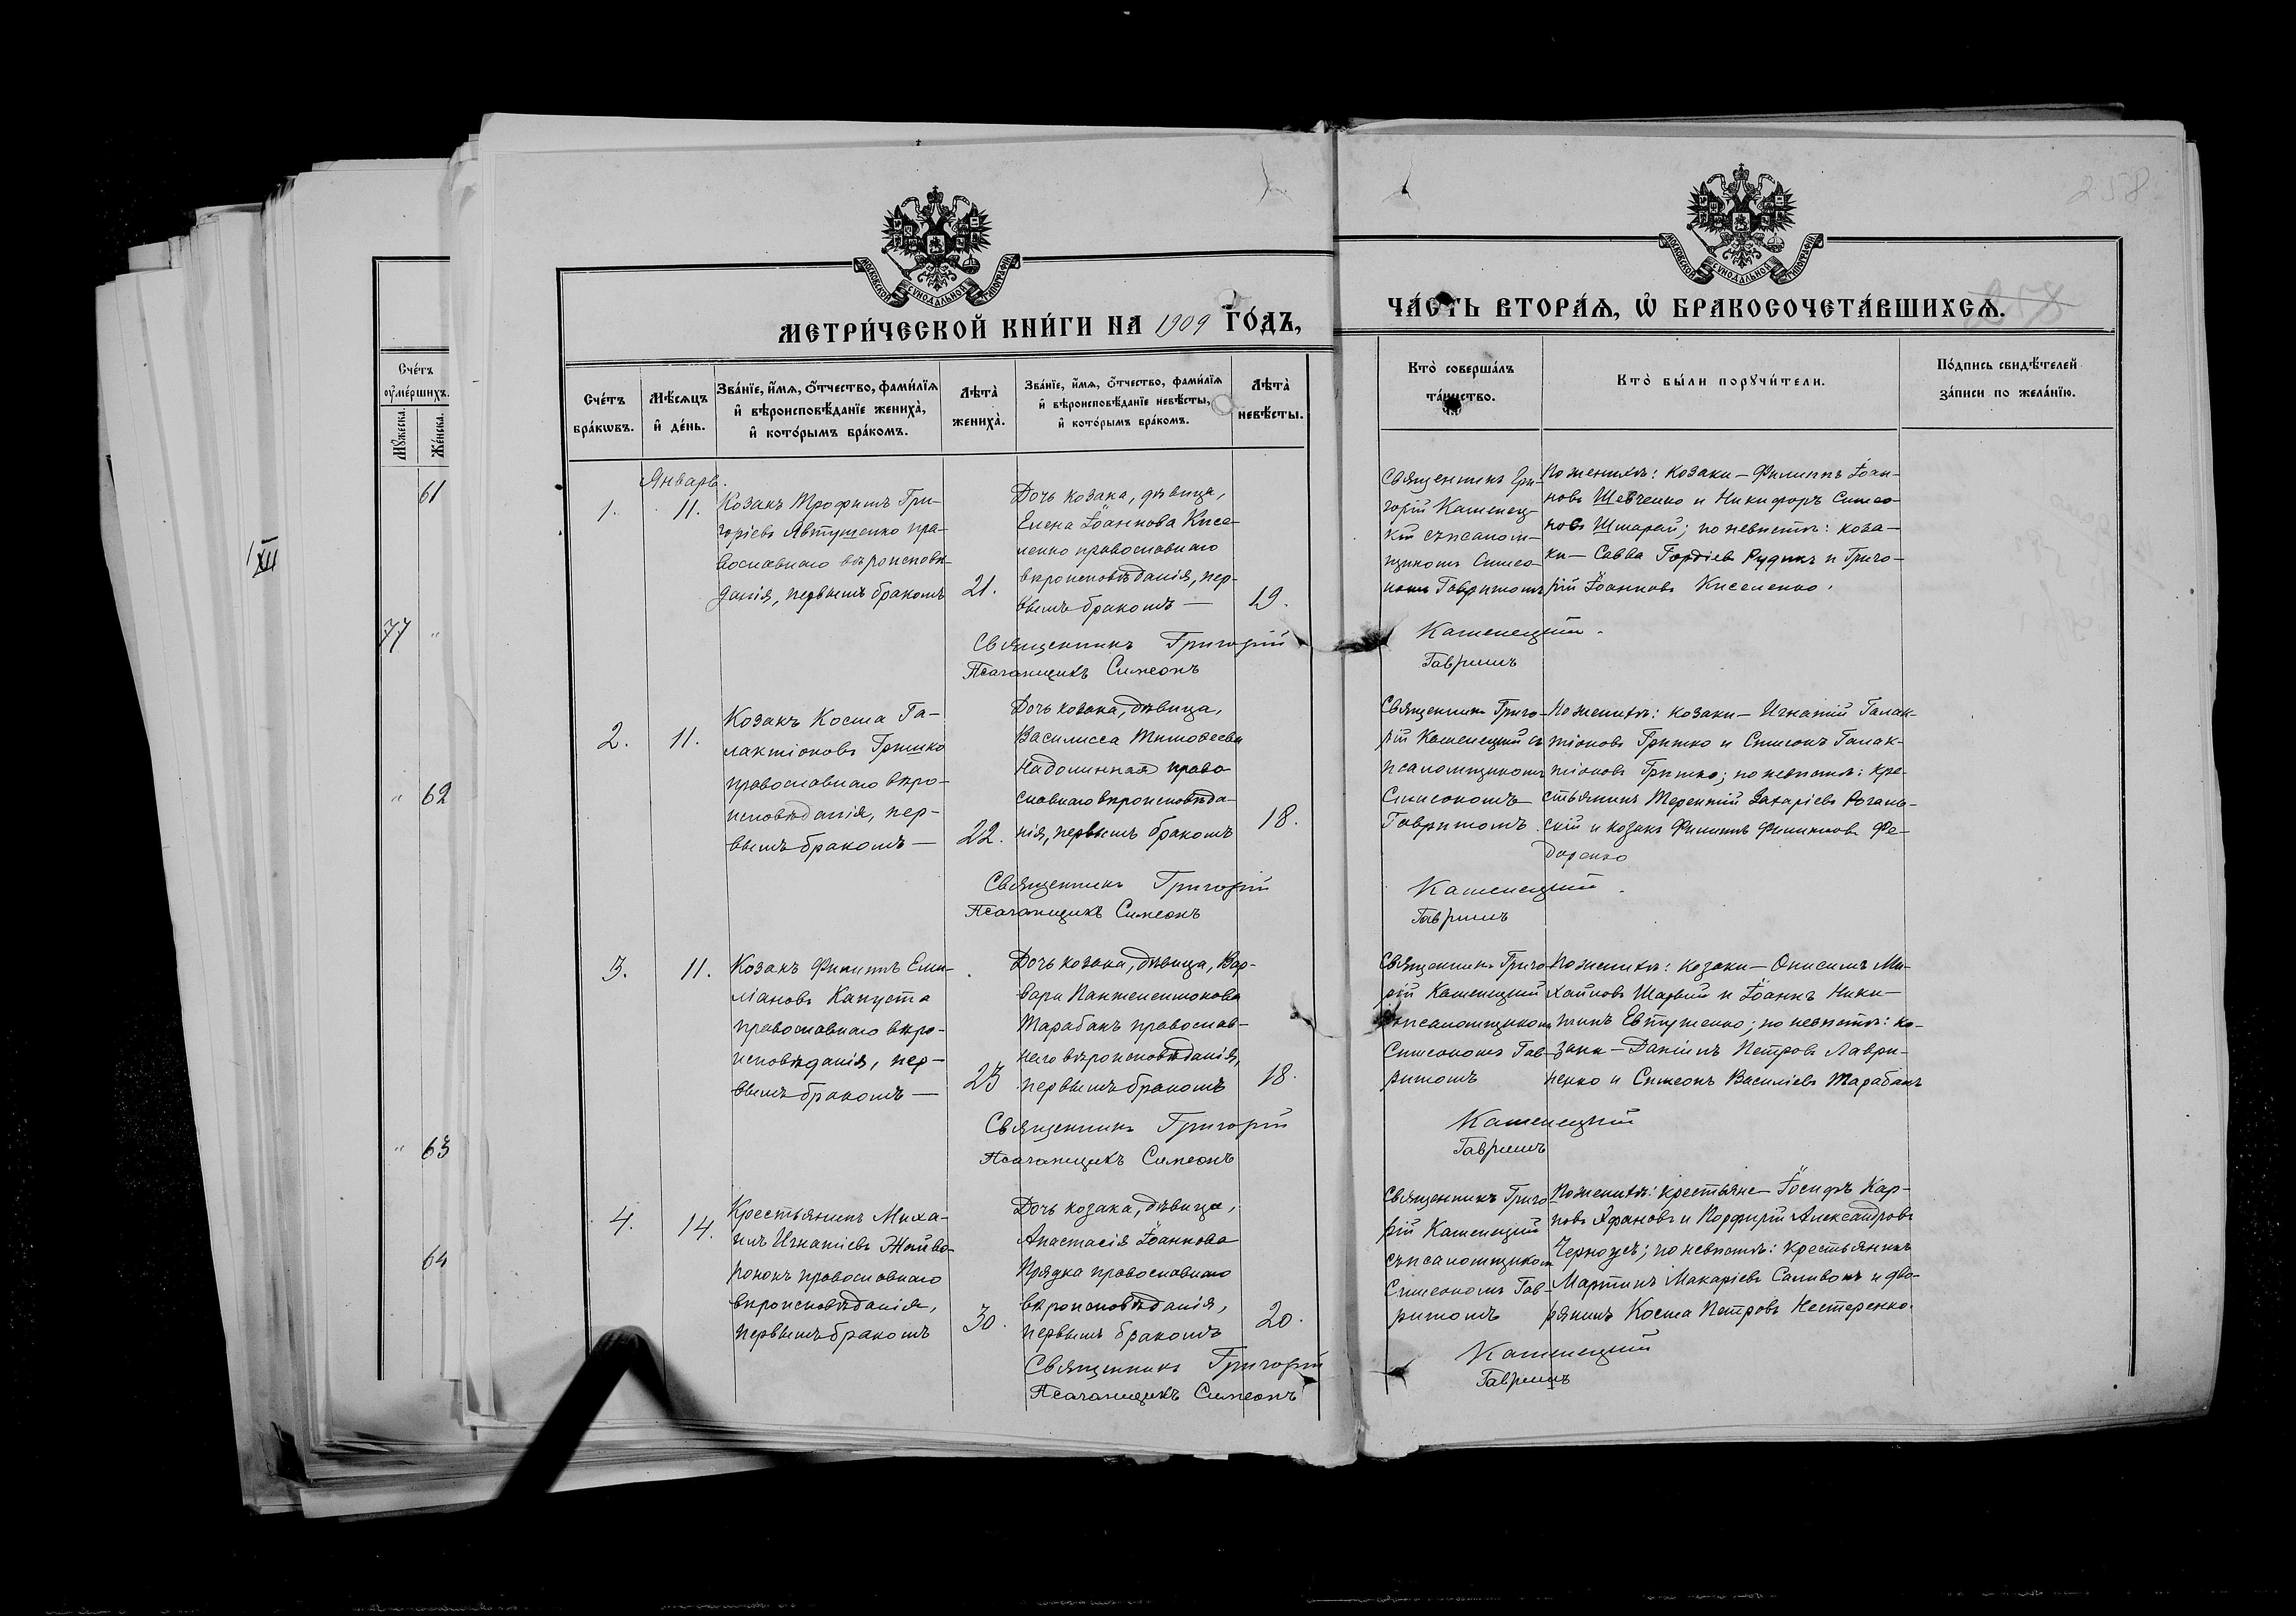 258
МОСКОВСКОЙ СѴНОДАЛЬНОЙ ТИПОГРАФІИ
МОСКОВСКОЙ СѴНОДАЛЬНОЙ ТИПОГРАФІИ
МЕТРИ́ЧЕСКОЙ КНИ́ГИ НА 1909 ГО́ДЪ,
ЧА́СТЬ ВТОРА́Ѧ, Ѡ҆ БРАКОСОЧЕТА́ВШИХСѦ.
Сче́тъ
ᲂу҆ме́ршихъ.
Мꙋ́жеска.
Же́нска.
61
77 "
" 62
" 63
64
XII
Сче́тъ
бра́кѡвъ.
Мѣ́сѧцъ
и҆ де́нь.
Зва́нїе, и҆́мѧ, ѻ҆́тчество, фами́лїѧ
и҆ вѣроисповѣ́данїе жениха̀,
и҆ кото́рымъ бра́комъ.
Лѣта̀
жениха̀.
Зва́нїе, и҆́мѧ, ѻ҆́тчество, фами́лїѧ
и҆ вѣроисповѣ́данїе невѣ́сты,
и҆ кото́рымъ бра́комъ.
Лѣта̀
невѣ́сты.
Кто̀ соверша́лъ
та́инство.
Кто̀ бы́ли порꙋчи́тели.
По́дпись свидѣ́телей
за́писи по жела́нїю.
Январь.
1.
11.
Козакъ Трофимъ Гри-
горіевъ Явтушенко пра-
вославнаго вѣроисповѣ-
данія, первымъ бракомъ
21.
Дочь козака, дѣвица,
Елена Іоаннова Кисе-
ленко православнаго
вѣроисповѣданія, пер-
вымъ бракомъ —
19.
Священникъ Гри-
горій Каменец-
кій съ псалом-
щикомъ Симео-
номъ Гавришомъ
По женихѣ: козаки — Филиппъ Іоан-
новъ Шевченко и Никифоръ Симео-
новъ Шмарай; по невѣстѣ: коза-
ки — Савва Гордіевъ Рудикъ и Григо-
рій Іоанновъ Киселенко.
Священникъ Григорій Каменецкій.
Псаломщикъ Симеонъ Гавришъ
2.
11.
Козакъ Косма Га-
лактіоновъ Гришко
православнаго вѣро-
исповѣданія, пер-
вымъ бракомъ —
22.
Дочь козака, дѣвица,
Василисса Тимоѳеева
Надолинная право
славнаго вѣроисповѣда-
нія, первымъ бракомъ
18.
Священникъ Григо-
рій Каменецкій съ
псаломщикомъ
Симеономъ
Гавришомъ.
По женихѣ: козаки — Игнатій Галак-
тіоновъ Гришко и Симеонъ Галак-
тіоновъ Гришко; по невѣстѣ: кре-
стьянинъ Терентій Захаріевъ Рогань-
скій и козакъ Филиппъ Филипповъ Фе-
доренко
Священникъ Григорій Каменецкій.
Псаломщикъ Симеонъ Гавришъ
3.
11.
Козакъ Филиппъ Еми-
ліановъ Капуста
православнаго вѣро-
исповѣданія, пер-
вымъ бракомъ —
23
Дочь козака, дѣвица, Вар-
вара Пантелеимонова
Тарабанъ православ-
наго вѣроисповѣданія,
первымъ бракомъ
18.
Священникъ Григо
рій Каменецкій
съ псаломщикомъ
Симеономъ Гав-
ришомъ
По женихѣ: козаки — Онисимъ Ми-
хаиловъ Шарый и Іоаннъ Ники-
тинъ Евтушенко; по невѣстѣ: ко-
заки — Даніилъ Петровъ Лаври-
ненко и Симеонъ Василіевъ Тарабанъ
Священникъ Григорій Каменецкій
Псаломщикъ Симеонъ Гавришъ
4.
14.
Крестьянинъ Миха-
илъ Игнатіевъ Жайво-
ронокъ православнаго
вѣроисповѣданія,
первымъ бракомъ
30.
Дочь козака, дѣвица,
Анастасія Іоаннова
Прядка православнаго
вѣроисповѣданія,
первымъ бракомъ
20.
Священникъ Григо
рій Каменецкій
съ псаломщикомъ
Симеономъ Гав-
ришомъ
По женихѣ: крестьяне — Іосифъ Кар-
повъ АфанОвъ и Порфирій Александровъ
Черноусъ; по невѣстѣ: крестьянинъ
Мартинъ Макаріевъ Саливонъ и дво-
рянинъ Косма Петровъ Нестеренко.
Священникъ Григорій Каменецкій
Псаломщикъ Симеонъ Гавришъ